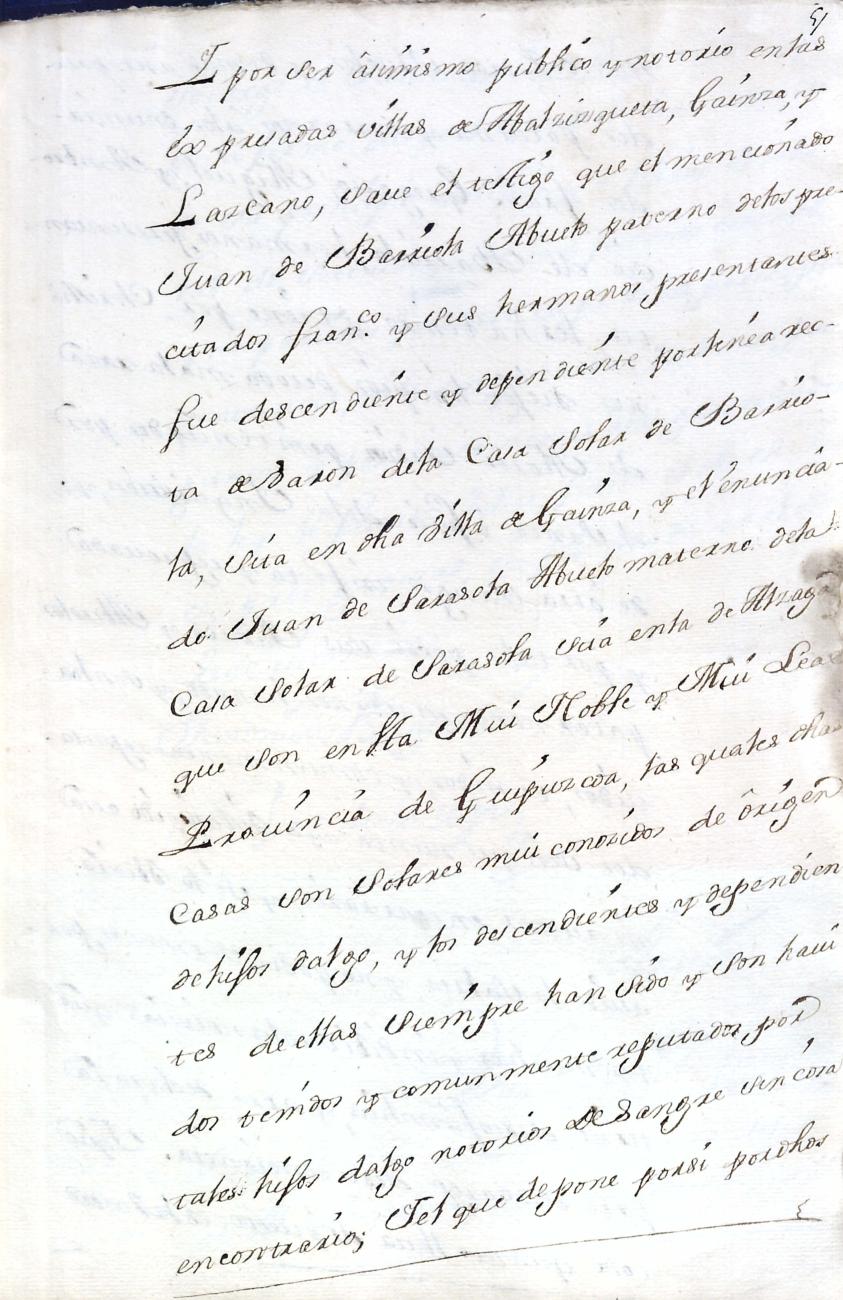 Y por ser âsimismo publico y notorio en las
Expresadas villas de Abalzizqueta, Gainza, y
Lazcano, save el testigo que el mencionado
Juan de Barriola Abuelo paterno delos pre-
citados Fran.co y sus hermanos presentantes
fue descendiente y dependiente por linea rec-
ta de Varon dela Casa Solar de Barrio-
la, sita en dha Villa de Gainza, y el enuncia-
do Juan de Sarasola Abuelo materno dela
Casa Solar de Sarasola sita enla de Alzaga
que son en sta Mui Noble y Mui Leal
Provincia de Guipuzcoa, las quales dhas
Casas son Solares mui conozidos de ôrigen
de hijos dalgo, y los descendientes y dependien
tes de ellas siempre han sido y son havi
dos tenidos y comunmente reputados por
tales hijos dalgo notorios de Sangre sin cosa
en contrario; Y el que depone por si por dhos